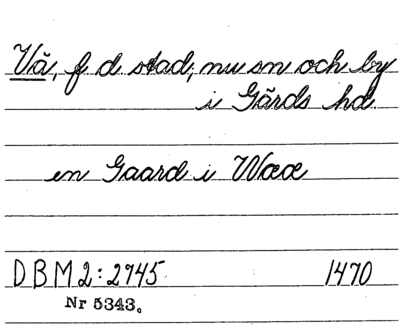 Vä, f d stad, nu sn och by
i Gärds hd
en Gaard i Wææ
DBM2:2745 1470
Nr 5343.